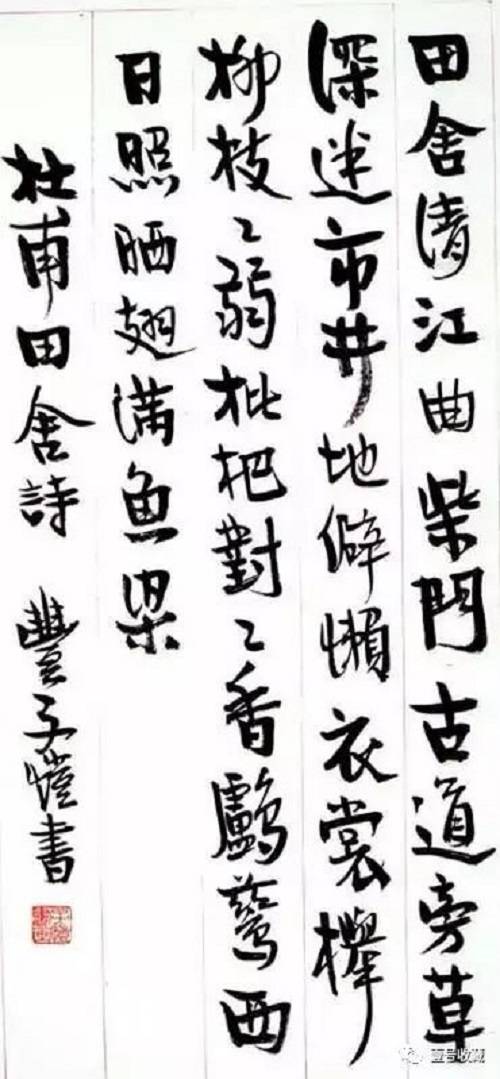 田舍清江曲柴門古道旁草
深迷市井地僻懶衣裳櫸
柳枝〻弱枇杷對〻香鸕鶿西
日照晒翅满魚梁
杜甫田舍詩 豐子愷書
壹号收藏